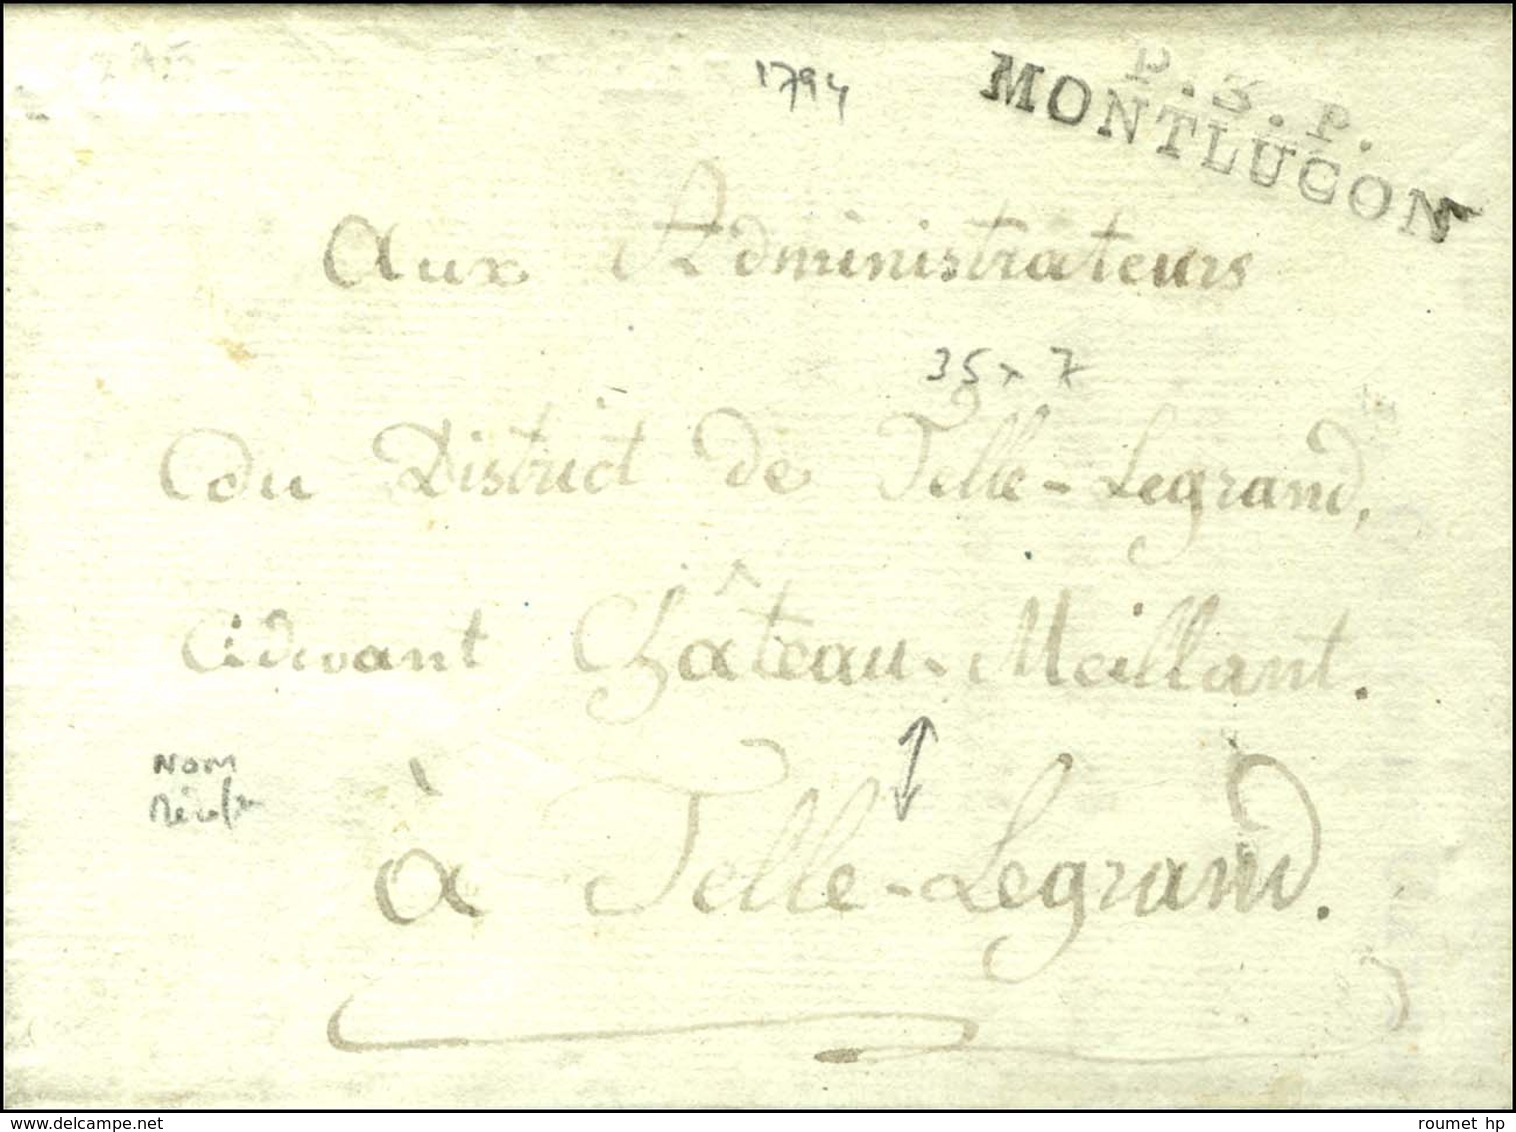 1794
P.3.P.
MONTLUCON
Aux Administrateurs
35 x 7
du District de Telle-Legrand,
Cidevant Château-Meillant.
NOM
à Telle-Legrand.
delcampe.net
roumet hp